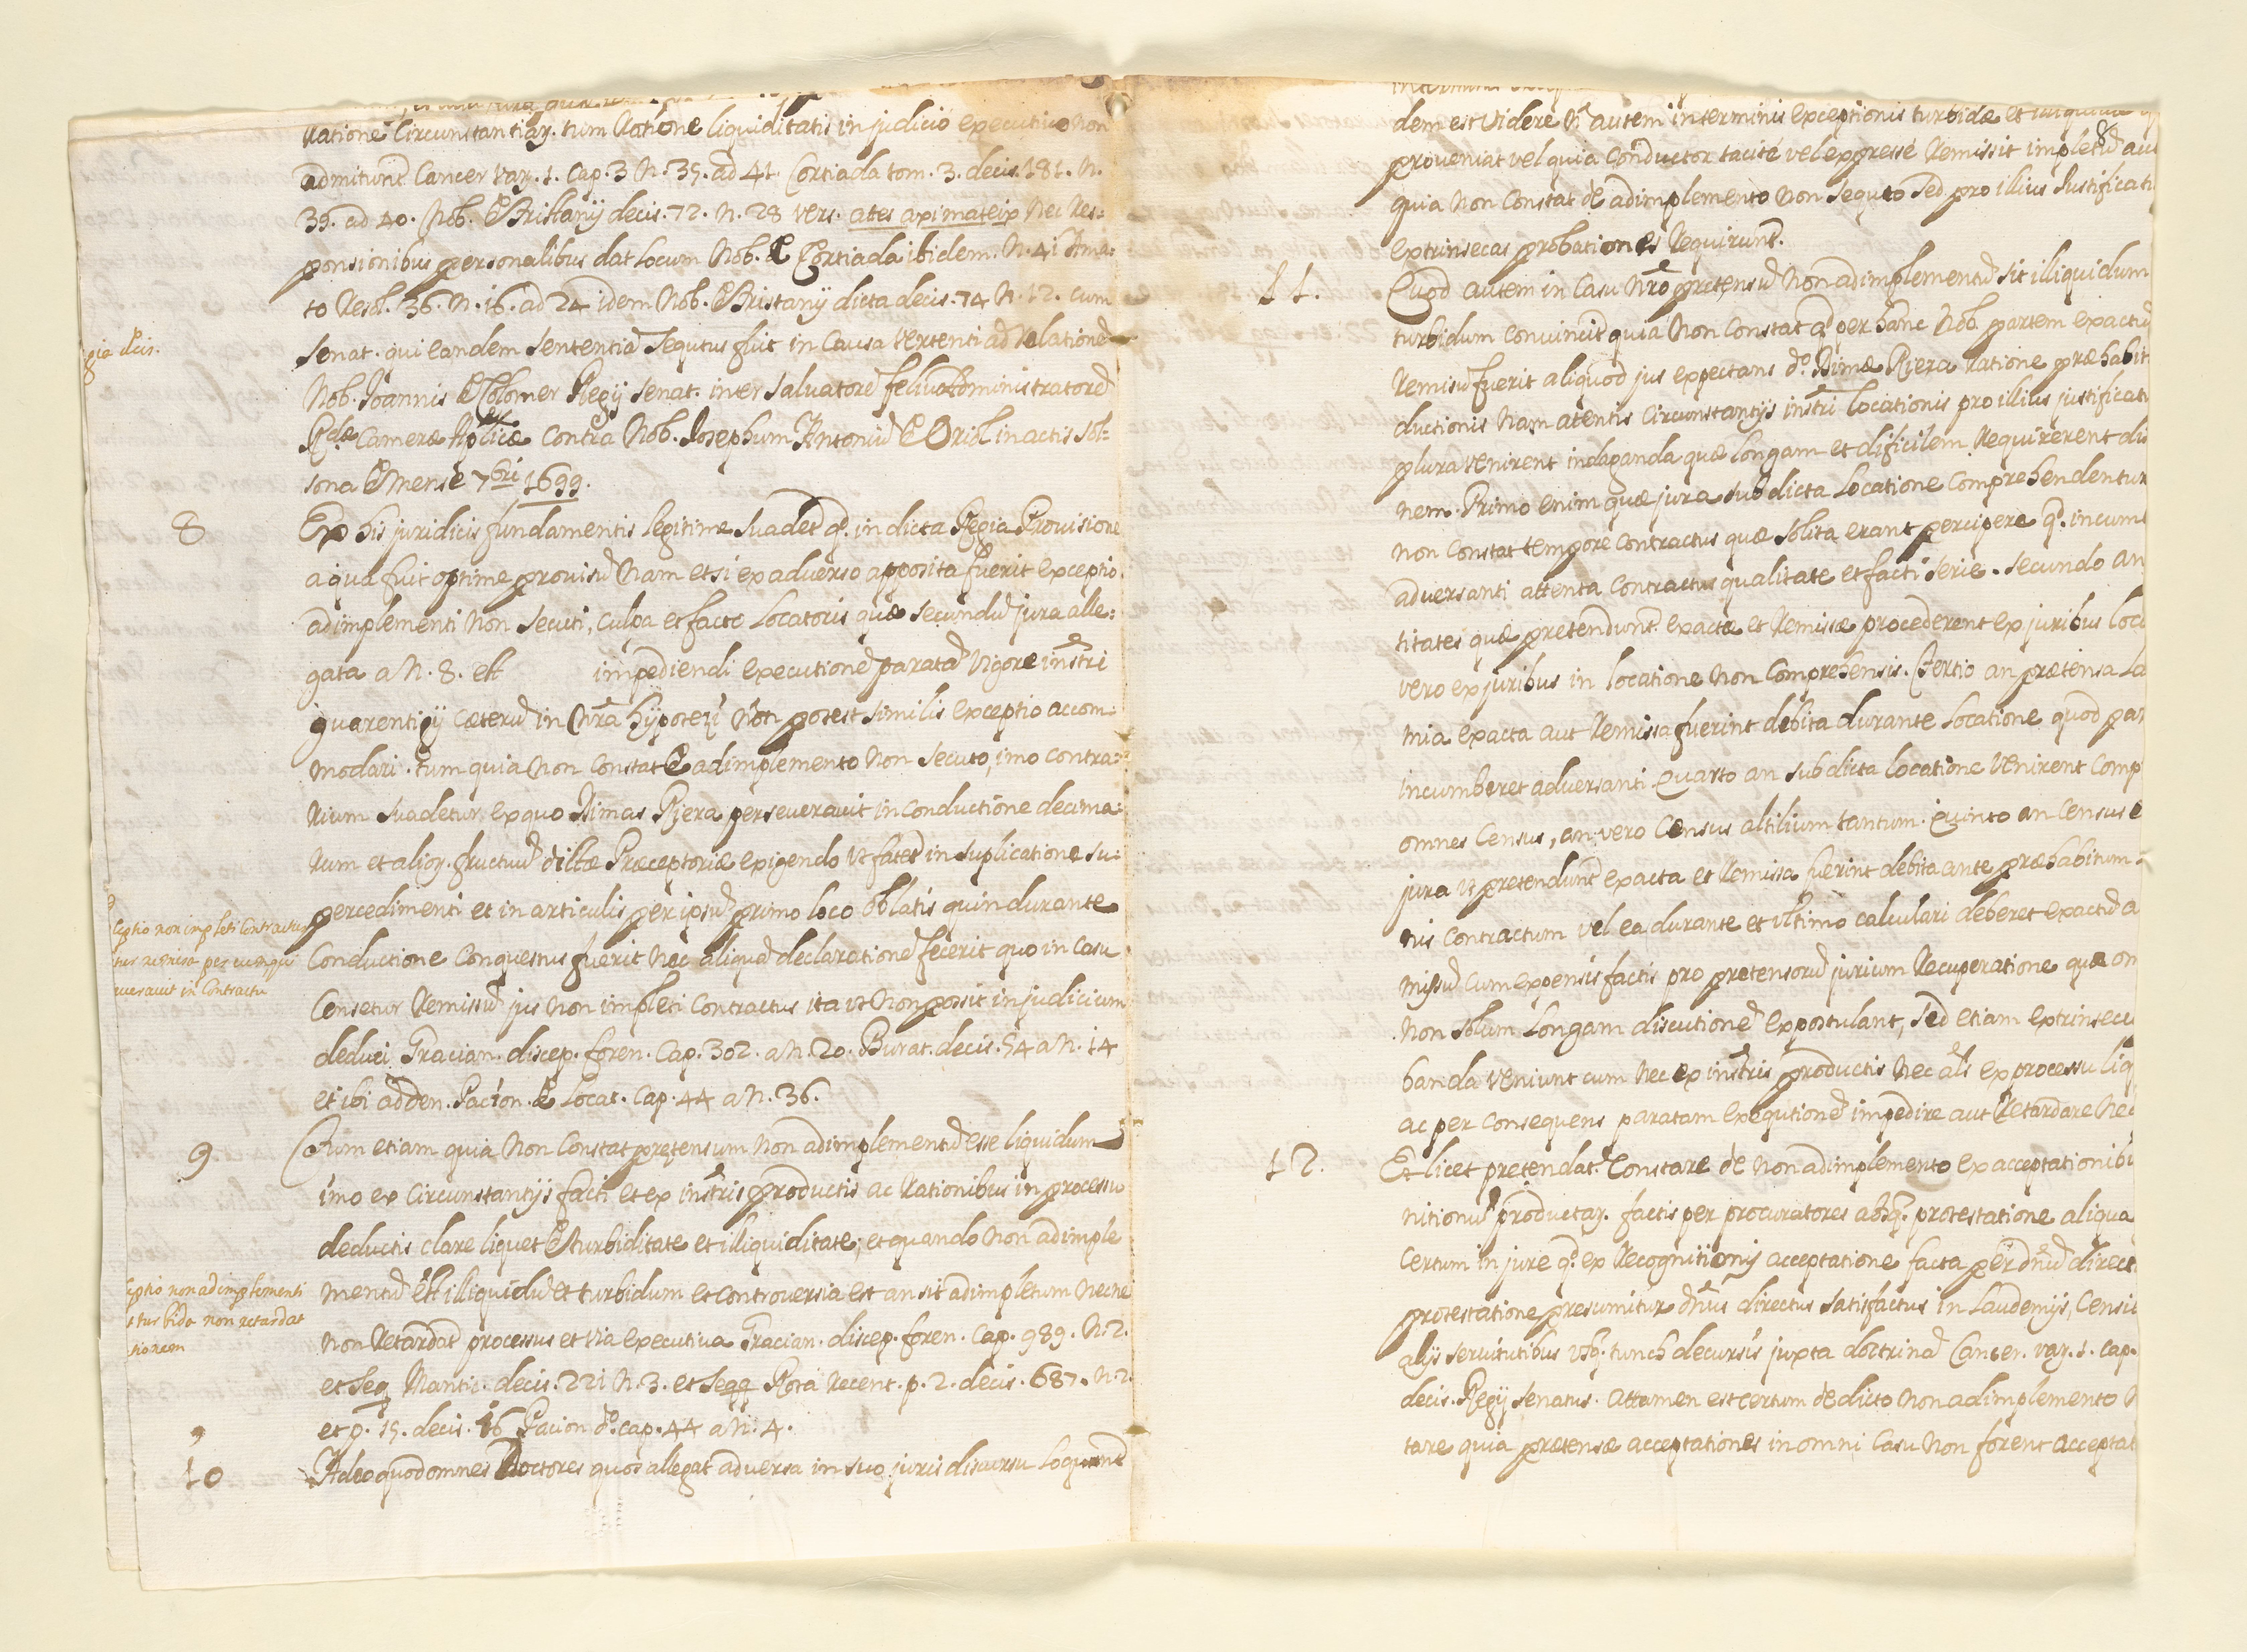 ratione circunstantiar. tum ratione liquiditatis in judicio executivo non
admitunt. Cancer var. 1. cap. 3 n. 39. ad 41. Cortiada tom. 3. decis. 181. n.
39. ad 40. Nob. de Bristany decis. 72. n. 28 vers. ates aximateix nec res:
ponsionibus personalibus dat locum Nob. de Cortiada ibidem. n. 41 Ama:
to resol. 36. n. 16. ad 24 idem Nob. de Bristany dicta decis. 74 n. 12. cum
gia decis.
senat. qui eandem sententiã sequtus fuit in causa vertenti ad relationẽ
Nob. Joannis de Colomer Regij senat. inter salvatorẽ feliu administratorẽ
Rdæ Cameræ Aplicæ contra Nob. Josephum Antoniũ de Oriol in actis sol:
sona de mense 7bri 1699.
8 Ex his juridicis fundamentis legitime suadet q. in dicta Regia Provisione
a qua fuit optime provisũ nam etsi ex adverso apposita fuerit exceptio
adimplementi non secuti, culpa et facto locatoris quæ secundũ jura alle:
gata a n. 8. est impediendi executionẽ paratã vigore instri
guarentigij cæterũ in nra hypotesi non potest similis exceptio accom:
modari. tum quia non constat de adimplemento non secuto, imo contra:
rium suadetur ex quo Dimas Riera perseveravit in conductione decima:
rum et alior. fructuũ dictæ Præceptoriæ exigendo ut fatet in suplicatione su:
percedimenti et in articulis per ipsũ primo loco oblatis quin durante
ceptio non impleti contractus
tur remissa per eum qui
uerauit in contractu
conductione conquestus fuerit nec aliquã declarationẽ fecerit quo in casu
censetur remissũ jus non impleti contractus ita ut non possit in judicium
deduci Gracian. discep. foren. cap. 302. a n. 20. Burat. decis. 54 a n. 14
et ibi adden. Pacion. de Locat. cap. 44 a n. 36.
9 Tum etiam quia non constat pretensum non adimplementũ esse liquidum
imo ex circunstantijs facti et ex instris productis ac rationibus in processu
deductis clare liquet de turbiditate et illiquiditate, et quando non adimple
ceptio non adimplementi
t turbida non retardat
tionem
mentũ est illiquidũ et turbidum et controversia est an sit adimpletum necne
non retardat processus et via executiva Gracian. discep. foren. cap. 989. n. 2.
et seq Mantic. decis. 221 n. 3. et seqq Rota recent. p. 2. decis. 687. n. 2.
et p. 15. decis. 16 Pacion do. cap. 44 a n. 4.
10 Adeo quod omnes Doctores quos allegat adversa in suo juris discursu loqunt
dem est videre
autem in terminis exceptionis turbidæ et
proveniat vel quia conductor tacité vel expressé remissit impletũ aut
quia non constat de adimplemento non sequto sed pro illius justificati
extrinsecas probationes requirunt.
11. Quod autem in casu nro pretensũ non adimplementũ sit illiquidum
turbidum convincit quia non constat q per hanc Nob. partem exactũ
remisũ fuerit aliquod jus expectans do. Dimæ Riera ratione præhabit
ductionis nam atentis circunstantijs instri locationis pro illius justificati
plura venirent indaganda quæ longam et dificilem requirerent dis
nem. Primo enim quæ jura sub dicta locatione comprehendentur
non constat tempore contractus quæ solita erant percipere q. incum
adversanti attenta contractus qualitate et facti serie. secundo an
titates quæ pretendunt exactæ et remissæ procederent ex juribus loca
vero ex juribus in locatione non comprehensis. Tertio an prætensa la
mia exacta aut remissa fuerint debita durante locatione quod par
incumberet adversanti. Quarto an sub dicta locatione venirent comp
omnes census, an vero census altilium tantum. Quinto an census e
jura ut pretendunt exacta et remissa fuerint debita ante præhabitum
nis contractum vel ea durante et ultimo calculari deberet exactũ a
missũ cum expensis factis pro pretensorũ jurium recuperatione quæ om
non solum longam discutionẽ expostulant, sed etiam extrinsecu
banda veniunt cum nec ex instris productis nec als ex processu liq
ac per consequens paratam exequtionẽ impedire aut retardare nec
12. Et licet pretendat constare de non adimplemento ex acceptationibu
nitionũ productar. factis per procuratores absq. protestatione aliqua
certum in jure q. ex recognitionis acceptatione facta per dnũ direct
protestatione presumitur dnus directus satisfactus in laudemijs, censu
alijs servitutibus usq. tunch decursis juxta doctrinã Cancer. var. 1. cap.
decis. Regij senatus. attamen est certum de dicto non adimplemento
tare quia prætensæ acceptationes in omni casu non forent acceptat